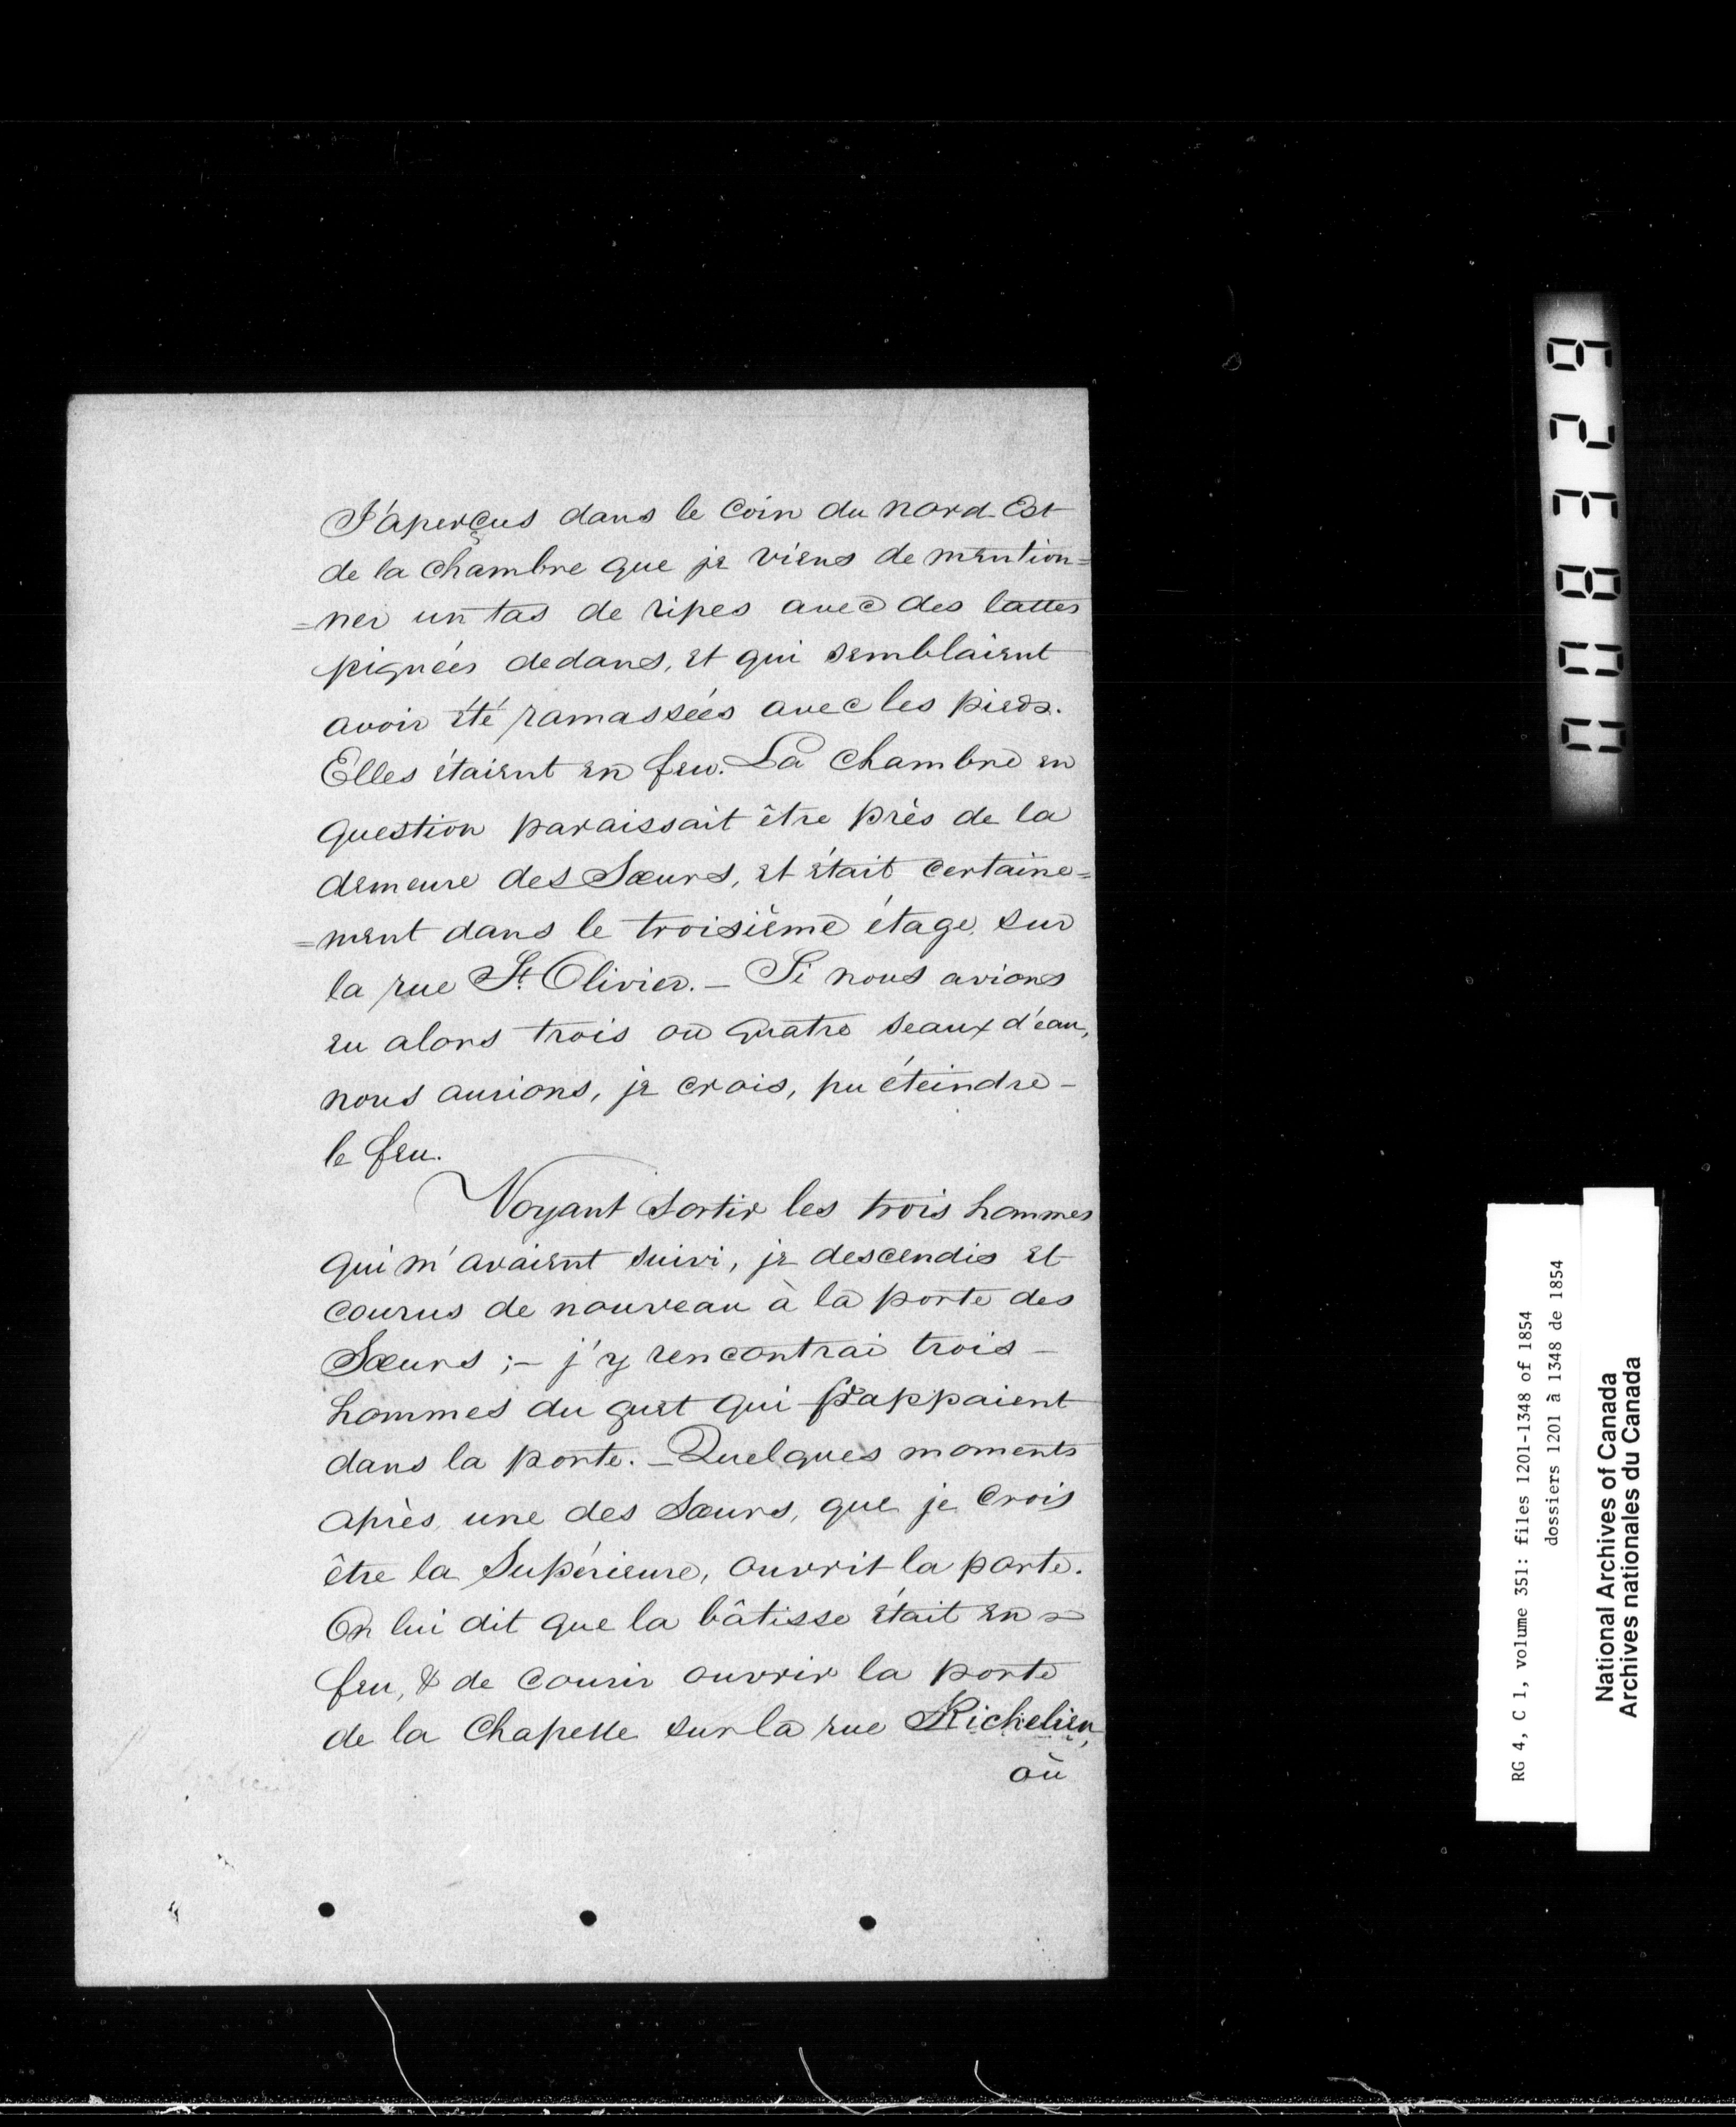 J'aperçus dans le coin du nord-Est
de la chambre que je viens de mention=
=ner un tas de ripes avec des lattes
piquées dedans, et qui semblaient
avoir été ramassées avec les pieds.
Elles étaient en feu. La chambre en
question paraissait être près de la
demeure des Sœurs, et était certaine=
=ment dans le troisième étage sur
la rue St. Olivier. — Si nous avions
eu alors trois ou quatre seaux d'eau,
nous aurions, je crois, pu éteindre —
le feu.
Voyant sortir les trois hommes
qui m'avaient suivi, je descendis et
courus de nouveau à la porte des
Sœurs ; — j'y rencontrai trois —
hommes du guet qui frappaient
dans la porte. — Quelques moments
après, une des Sœurs, que je crois
être la Supérieure, ouvrit la porte.
On lui dit que la bâtisse était en
feu, & de courir ouvrir la porte
de la Chapelle sur la rue Richelieu,
où
003829
RG 4, C 1, volume 351: files 1201-1348 of 1854
dossiers 1201 à 1348 de 1854
National Archives of Canada
Archives nationales du Canada